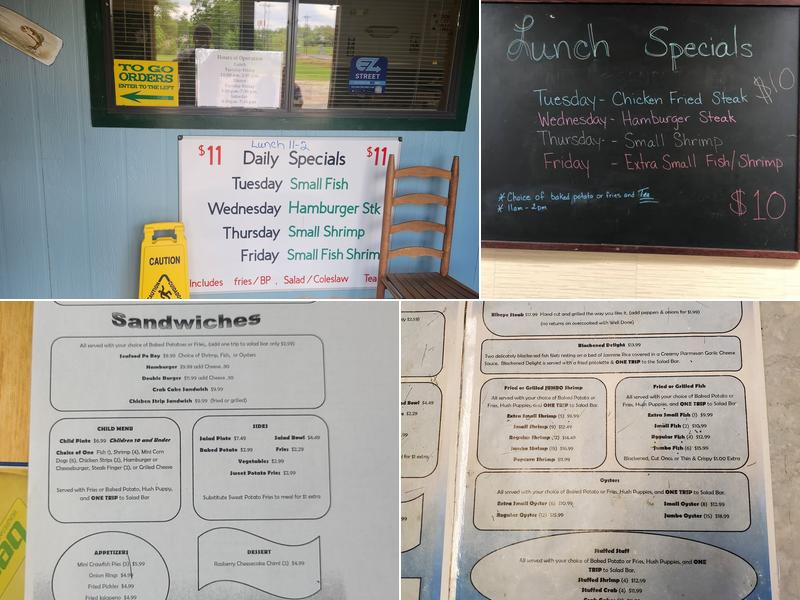 TO GO
ORDERS
ENTER TO THE LEFT
Hours of Operation
Lunch
Tuesday-Friday
Dinner
Saturday
EZ
STREET
$11 Lunch 11-2 $11
Daily Specials
Tuesday Small Fish
Wednesday Hamburger Stk
Thursday Small Shrimp
Friday Small Fish Shrim
Includes fries/BP, Salad/Coleslaw Tea
CAUTION
Lunch Specials
$10
Tuesday - Chicken Fried Steak
Wednesday - Hamburger Steak
Thursday - Small Shrimp
Friday - Extra Small Fish/Shrimp
* Choice of baked potato or fries and Tea
* 11am - 2pm
$10
Sandwiches
All served with your choice of Baked Potatoes or Fries, (add one trip to salad bar only $2.99)
Seafood Po Boy $9.99 Choice of Shrimp, Fish, or Oysters
Hamburger $9.99 add Cheese .50
Double Burger $11.99 add Cheese .50
Crab Cake Sandwich $9.99
Chicken Strip Sandwich $9.99 (fried or grilled)
CHILD MENU
Child Plate $6.99 Children 10 and Under
Choice of One Fish 1, Shrimp (4), Mini Corn
Dogs (6), Chicken Strips (2), Hamburger or
Cheeseburger, Steak Finger (2), or Grilled Cheese
Served with Fries or Baked Potato, Hush Puppy,
and ONE TRIP to Salad Bar
SIDES
Salad Plate $7.49 Salad Bowl $4.49
Baked Potato $2.99 Fries $2.29
Vegetables $2.99
Sweet Potato Fries $2.99
Substitute Sweet Potato Fries to meal for $1 extra
APPETIZERS
Mini Crawfish Pies (3) $5.99
Onion Rings $4.99
Fried Pickles $4.99
Fried Jalapeno $4.99
DESSERT
Rasberry Cheesecake Chimi (2) $4.99
Bowl $4.49
$2.29
for $1 extra
Ribeye Steak $17.99 Hand cut and grilled the way you like it. (add peppers & onions for $1.99)
(no returns on overcooked with Well Done)
Blackened Delight $13.99
Two delicately blackened fish filets resting on a bed of Jasmine Rice covered in a Creamy Parmesan Garlic Cheese
Sauce. Blackened Delight is served with a fried pistolette & ONE TRIP to the Salad Bar.
Fried or Grilled JUMBO Shrimp
All served with your choice of Baked Potatoes or
Fries, Hush Puppies, and ONE TRIP to Salad Bar.
Extra Small Shrimp (5) $9.99
Small Shrimp (9) $12.49
Regular Shrimp (12) $14.49
Jumbo Shrimp (15) $16.99
Popcorn Shrimp $11.99
Fried or Grilled Fish
All served with your choice of Baked Potato or
Fries, Hush Puppies, and ONE TRIP to Salad Bar
Extra Small Fish (1) $9.99
Small Fish (2) $10.99
Regular Fish (4) $12.99
Jumbo Fish (6) $15.99
Blackened, Cut Ones or Thin & Crispy $1.00 Extra
Oysters
All served with your choice of Baked Potato or Fries, Hush Puppies, and ONE TRIP to Salad Bar.
Extra Small Oyster (6) $10.99 Small Oyster (8) $12.99
Regular Oyster (12) $15.99 Jumbo Oyster (15) $18.99
Stuffed Stuff
All served with your choice of Baked Potato or Fries, Hush Puppies, and ONE
TRIP to Salad Bar.
Stuffed Shrimp (4) $12.99
Stuffed Crab (4) $11.99